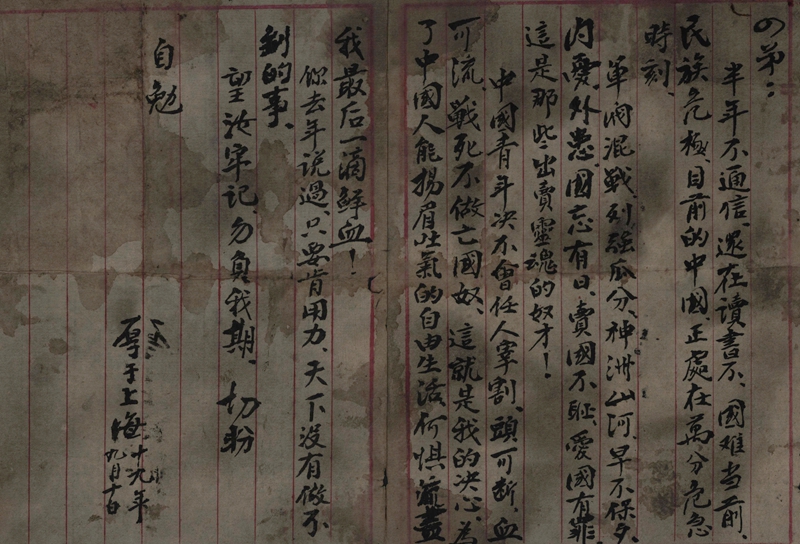 の弟:
半年不通信、還在讀書不、國难当前、
民族危極、目前的中國、正處在萬分危急
時刻、
軍阀混戰、列强瓜分、神洲山河、早不保夕、
内憂、外患、國忘有日、賣國不恥、愛國有罪
這是那些出賣靈魂的奴才!
中國青年决不會任人宰割、頭可断、血
可流、戰死不做亡國奴、這就是我的决心、為
了中國人能揚眉吐氣的自由生活、何惧流盡
我最后一滴鲜血!
你去年说過、只要肯用力、天下没有做不
到的事、
望汝牢记、勿負我期、切盼
自勉
厚于上海
十九年
九月十日